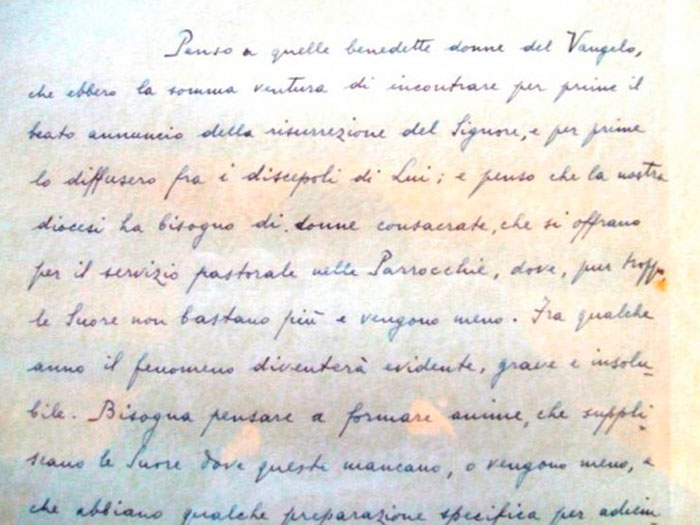 Penso a quelle benedette donne del Vangelo,
che ebbero la somma ventura di incontrare per prime il
beato annuncio della risurrezione del Signore, e per prime
lo diffusero fra i discepoli di Lui; e penso che la nostra
diocesi ha bisogno di donne consacrate, che si offrano
per il servizio pastorale nelle Parrocchie, dove, pur troppo,
le Suore non bastano più e vengono meno. Fra qualche
anno il fenomeno diventerà evidente, grave e insolu-
bile. Bisogna pensare a formare anime, che suppli-
scano le Suore dove queste mancano, o vengono meno, e
che abbiano qualche preparazione specifica per